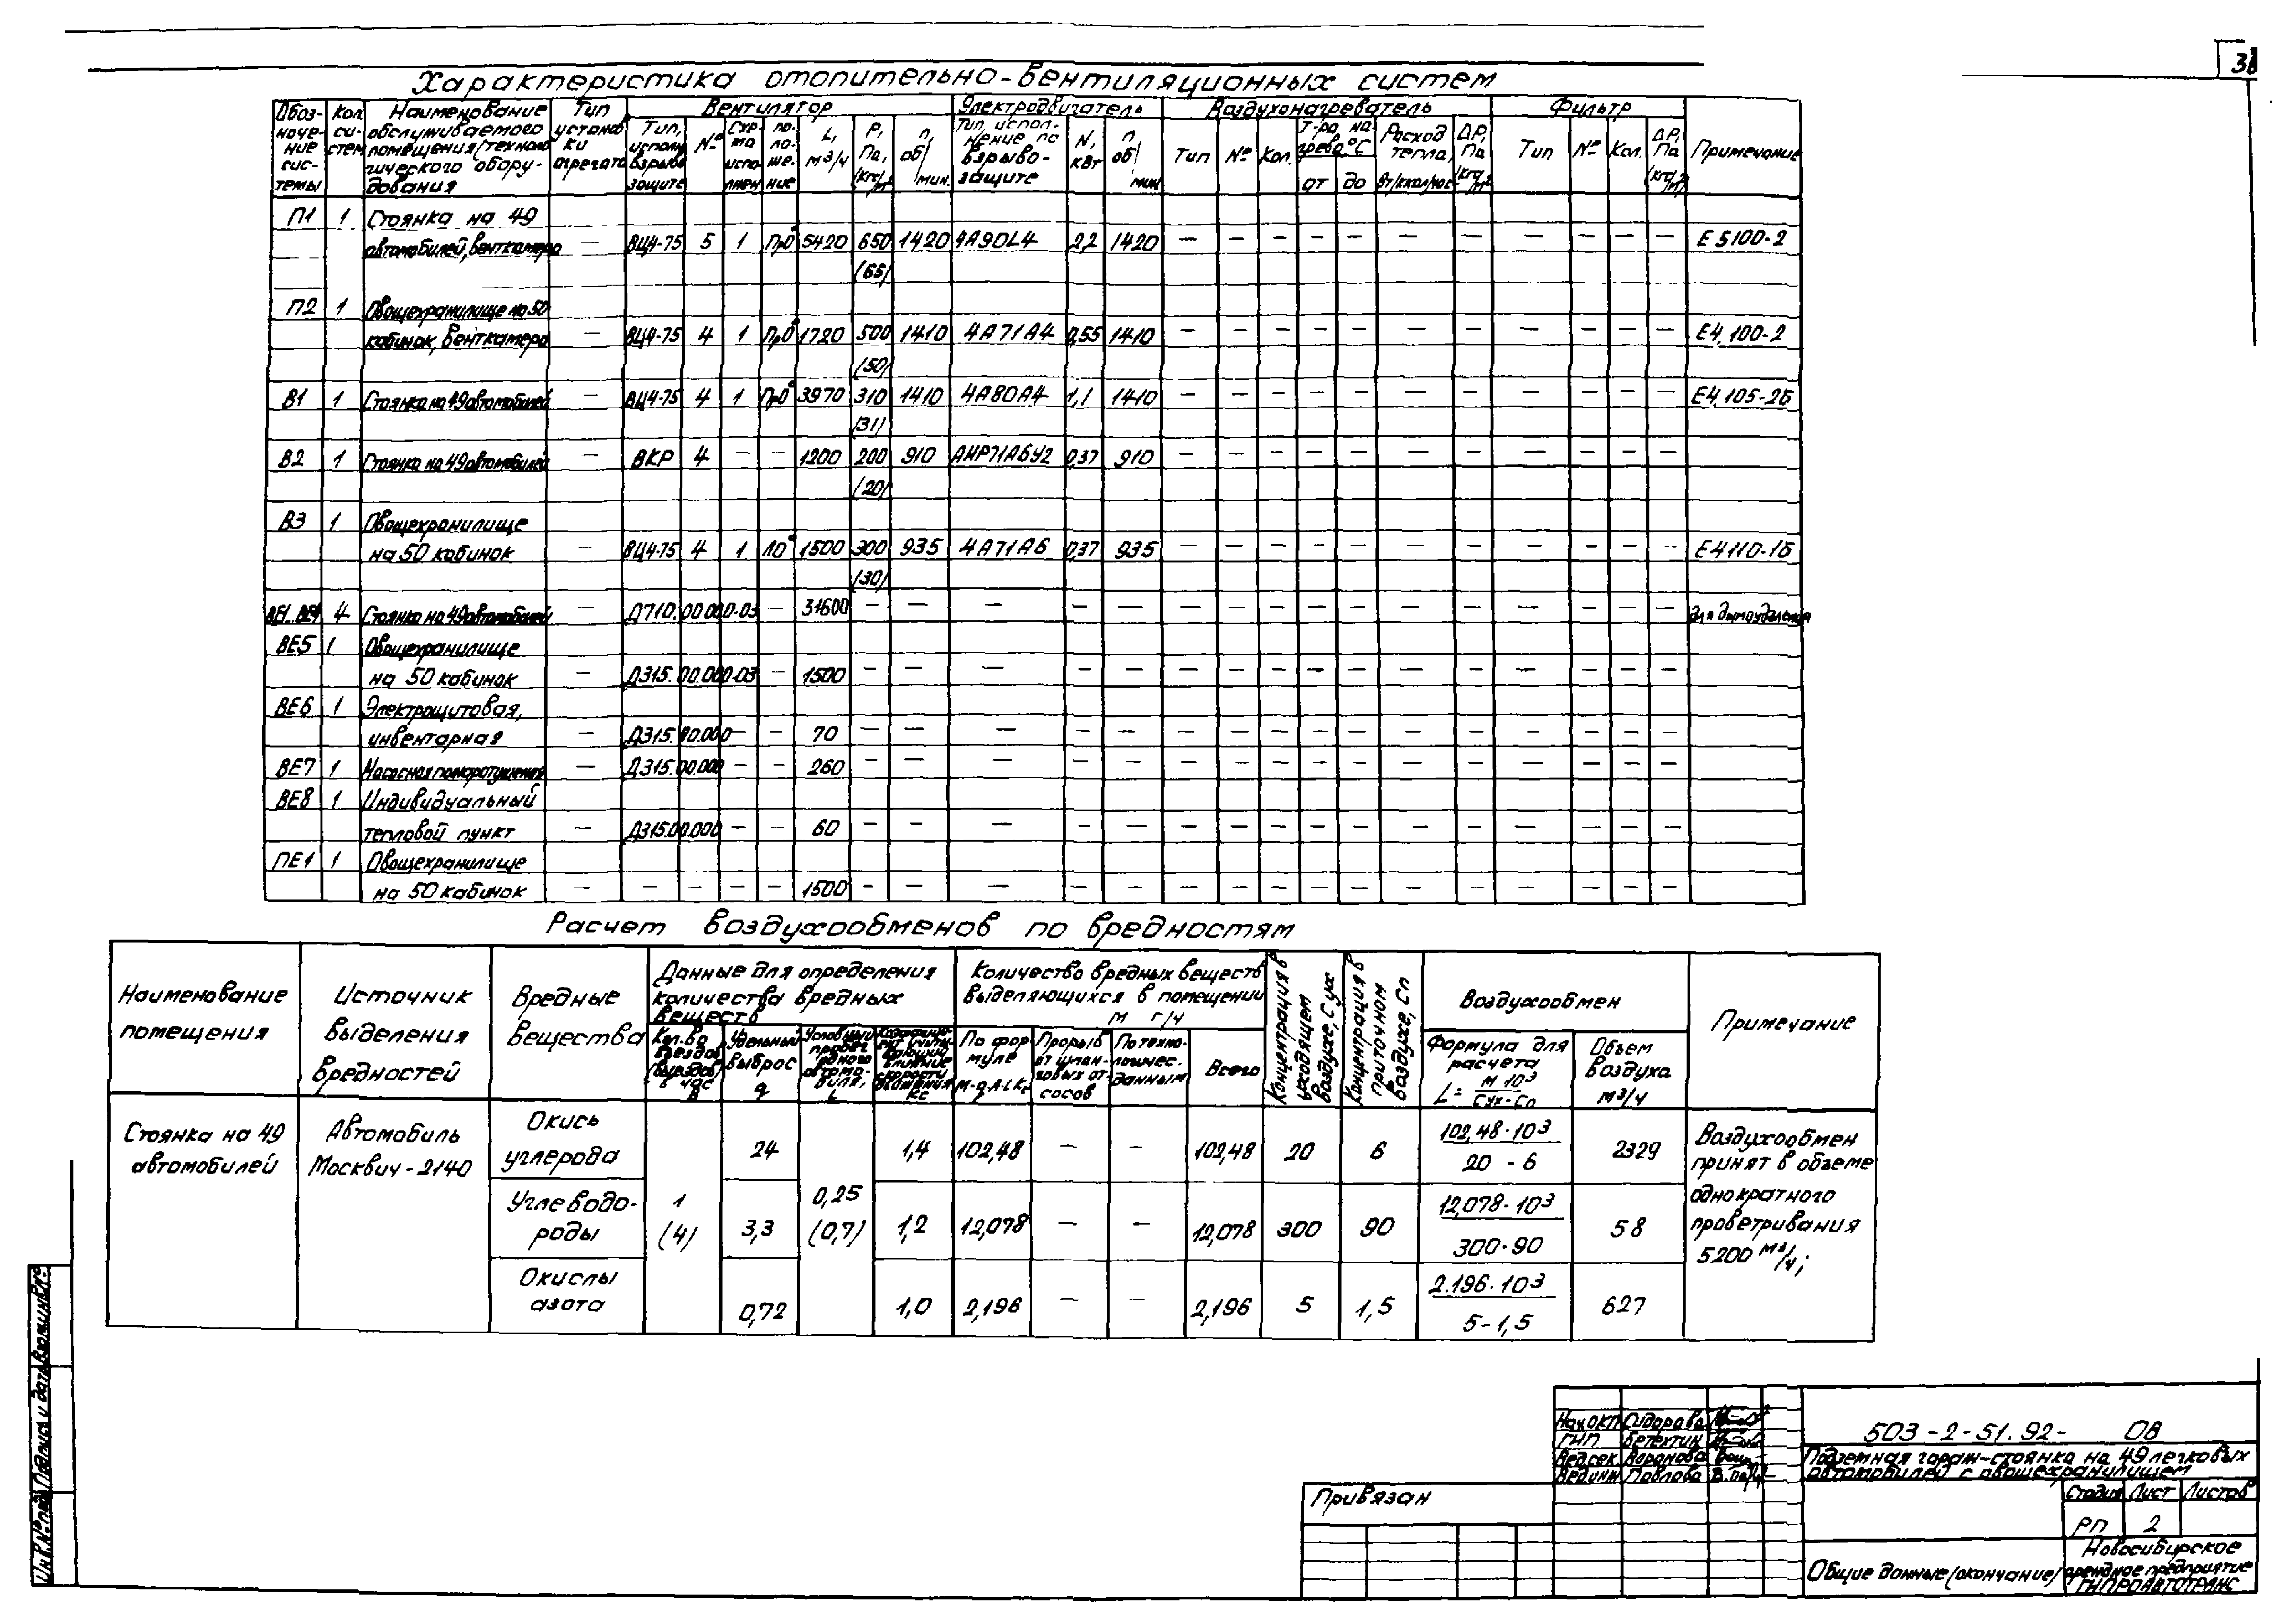 38
Характеристика отопительно-вентиляционных систем
Обозначение системы | Кол систем | Наименование обслуживаемого помещения/технологического оборудования | Тип установки агрегата | Вентилятор | Электродвигатель | Воздухонагреватель | Фильтр | Примечание
Тип, исполн взрывозащите | № | Схема исполнен | положение | L, м³/ч | P, Па, (кгс/м²) | n, об/мин. | Тип, исполнение по взрывозащите | N, кВт | n об/мин | Тип | № | Кол. | Т-ра, нагрева °C от до | Расход тепла, Вт/ккал/час | ΔP, Па (кгс/м²) | Тип | № | Кол. | ΔP, Па (кгс/м²)
П1 1 Стоянка на 49
автомобилей, венткамера — ВЦ4-75 5 1 Пр0° 5420 650 1420 4А90L4 2,2 1420 — — — — — — — — — — — Е 5100-2
(65)
П2 1 Овощехранилище на 50
кабинок, венткамера — ВЦ4-75 4 1 Пр0° 1720 500 1410 4А71А4 0,55 1410 — — — — — — — — — — — Е4. 100-2
(50)
В1 1 Стоянка на 49 автомобилей — ВЦ4-75 4 1 Пр0° 3970 310 1410 4А80А4 1,1 1410 — — — — — — — — — — — Е4. 105-2Б
(31)
В2 1 Стоянка на 49 автомобилей — ВКР 4 — — 1200 200 910 АИР71А6У2 0,37 910 — — — — — — — — — — —
(20)
В3 1 Овощехранилище
на 50 кабинок — ВЦ4-75 4 1 Л0° 1500 300 935 4А71А6 0,37 935 — — — — — — — — — — — Е4110-1Б
(30)
ВЕ1..ВЕ4 4 Стоянка на 49 автомобилей — Д710.00.000-03 — 31600 — — — — — — — — — — — — — — — — для дымоудаления
ВЕ5 1 Овощехранилище
на 50 кабинок — Д315.00.000-03 — 1500 — — — — — — — — — — — — — — — —
ВЕ6 1 Электрощитовая,
инвентарная — Д315.00.000 — — 70 — — — — — — — — — — — — — — — —
ВЕ7 1 Насосная пожаротушения — Д315.00.000 — — 260 — — — — — — — — — — — — — — — —
ВЕ8 1 Индивидуальный
тепловой пункт — Д315.00.000 — — 60 — — — — — — — — — — — — — — — —
ПЕ1 1 Овощехранилище
на 50 кабинок — — — — — 1500 — — — — — — — — — — — — — — — —
Расчет воздухообменов по вредностям
Наименование помещения | Источник выделения вредностей | Вредные вещества | Данные для определения количества вредных веществ | Количество вредных веществ выделяющихся в помещении М г/ч | Концентрация в уходящем воздухе, Сух | Концентрация в приточном воздухе, Сп | Воздухообмен | Примечание
Кол.во въездов выездов в час А | Удельный выброс q | Условный пробег одного автомобиля, L | Коэффициент учитывающий влияние скорости движения Кс | По формуле М=q·A·L·Kс | Прорыв от цианговых отсосов | По технологичес. данным | Всего | Формула для расчета L= М·10³/Сух-Сп | Объем воздуха м³/ч
Стоянка на 49 автомобилей | Автомобиль Москвич-2140 | Окись углерода | 24 | 1,4 | 102,48 | — | — | 102,48 | 20 | 6 | 102,48·10³ / 20 - 6 | 2329 | Воздухообмен принят в объеме однократного проветривания 5200 м³/ч;
Углеводороды | 1 (4) | 3,3 | 0,25 (0,7) | 1,2 | 12,078 | — | — | 12,078 | 300 | 90 | 12,078·10³ / 300-90 | 58
Окислы азота | 0,72 | 1,0 | 2,196 | — | — | 2,196 | 5 | 1,5 | 2.196·10³ / 5-1,5 | 627
Инв.№ подл Подпись и дата Взам инв.№
Нач ОКП Сидорова
ГИП Бетехтин
Вед.сек. Воронова
Вед.инж Павлова
503-2-51.92- ОВ
Подземная гараж-стоянка на 49 легковых
автомобилей с овощехранилищем
Привязан
Стадия Лист Листов
РП 2
Общие данные (окончание)
Новосибирское
арендное предприятие
ГИПРОАВТОТРАНС